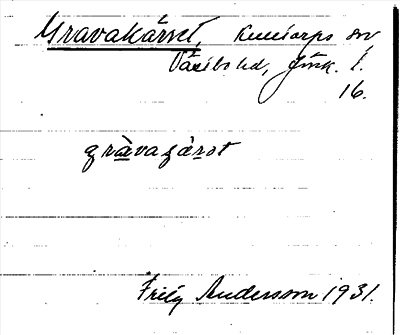 Gravakärret, Kulltorps sv
Västbo hd, Jönk. l.
16.
gràvagàrət
Frity Andersson 1931.